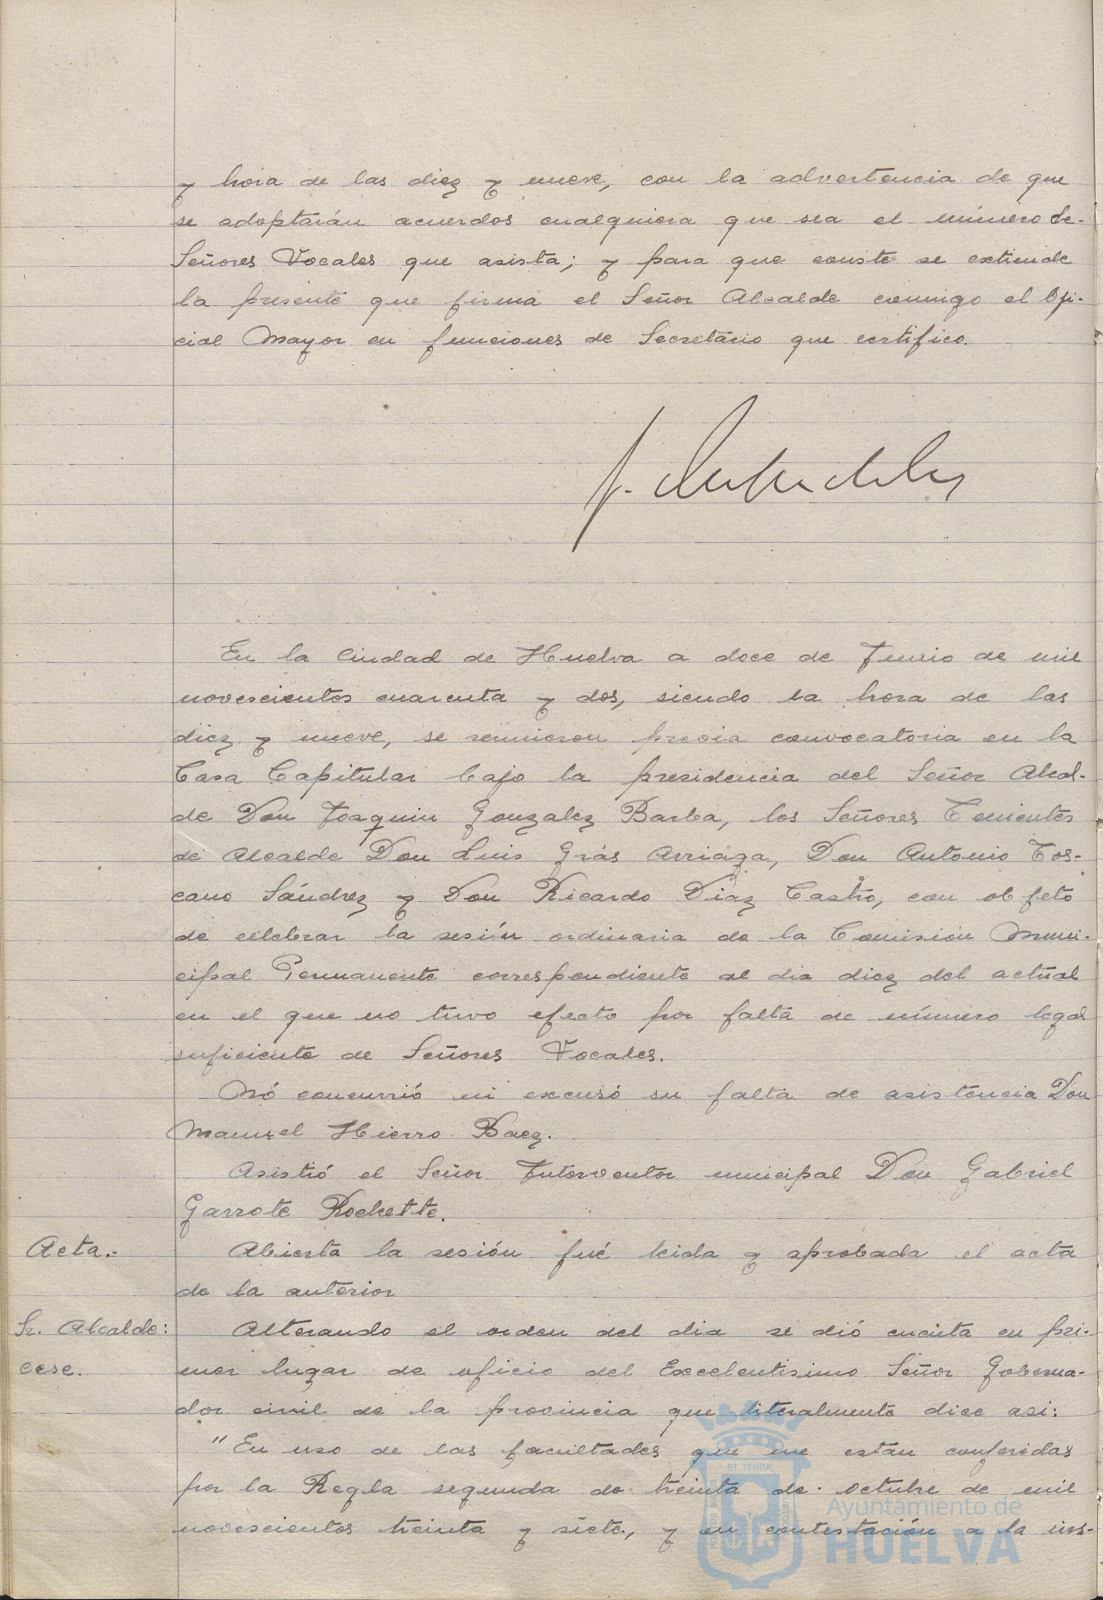 y hora de las diez y nueve, con la advertencia de que
se adoptarán acuerdos cualquiera que sea el número de
Señores Vocales que asista; y para que conste se extiende
la presente que firma el Señor Alcalde conmigo el Ofi-
cial Mayor en funciones de Secretario que certifico.
En la Ciudad de Huelva a doce de Junio de mil
novescientos cuarenta y dos, siendo la hora de las
diez y nueve, se reunieron previa convocatoria en la
Casa Capitular bajo la presidencia del Señor Alcal-
de Don Joaquin Gonzalez Barba, los Señores Tenientes
de Alcalde Don Luis Grás Arriaga, Don Antonio Tos-
cano Sándrez y Don Ricardo Diaz Castro, con objeto
de celebrar la sesión ordinaria de la Comisión Muni-
cipal Permanente correspondiente al dia diez del actual
en el que no tuvo efecto por falta de número legal
suficiente de Señores Vocales.
Nó concurrió ni excusó su falta de asistencia Don
Manuel Hierro Baez.
Asistió el Señor Interventor municipal Don Gabriel
Garrote Rochette.
Acta.-
Abierta la sesión fué leida y aprobada el acta
de la anterior
Sr. Alcalde:
cese.
Alterando el orden del dia se dió cuenta en pri-
mer lugar de oficio del Excelentisimo Señor Goberna-
dor civil de la provincia que literalmente dice asi:
"En uso de las facultades que me están conferidas
por la Regla segunda de treinta de octubre de mil
novescientos treinta y siete, y en contestación a la ins-
Ayuntamiento de
HUELVA